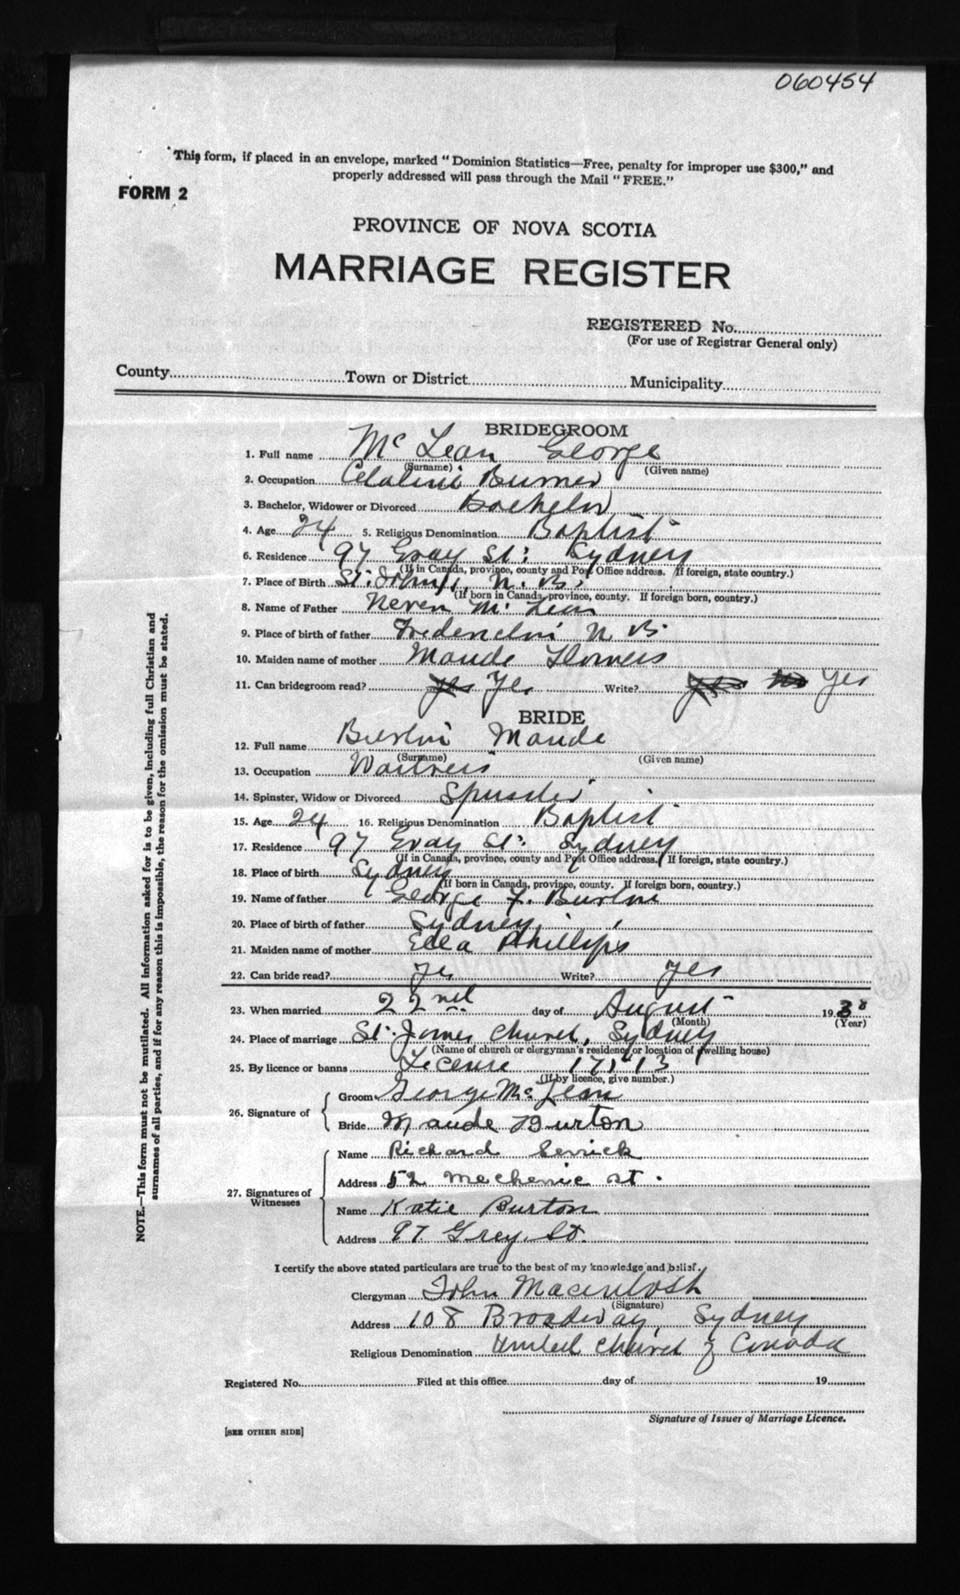 060454
This form, if placed in an envelope, marked "Dominion Statistics—Free, penalty for improper use $300," and
properly addressed will pass through the Mail "FREE."
FORM 2
PROVINCE OF NOVA SCOTIA
MARRIAGE REGISTER
REGISTERED No.
(For use of Registrar General only)
County Town or District Municipality
BRIDEGROOM
1. Full name Mc Lean George
(Surname) (Given name)
2. Occupation
3. Bachelor, Widower or Divorced Bachelor
4. Age 24 5. Religious Denomination Baptist
6. Residence 97 Gray St. Sydney
(If in Canada, province, county and Post Office address. If foreign, state country.)
7. Place of Birth St. John, N. B.
(If born in Canada, province, county. If foreign born, country.)
8. Name of Father Neven Mc Lean
9. Place of birth of father Fredericton N B.
10. Maiden name of mother Maude Flowers
11. Can bridegroom read? yes Yes Write? yes no Yes
BRIDE
12. Full name Maude
(Surname) (Given name)
13. Occupation Waitress
14. Spinster, Widow or Divorced Spinster
15. Age 24 16. Religious Denomination Baptist
17. Residence 97 Gray St. Sydney
(If in Canada, province, county and Post Office address. If foreign, state country.)
18. Place of birth Sydney
(If born in Canada, province, county. If foreign born, country.)
19. Name of father George F. Burton
20. Place of birth of father Sydney
21. Maiden name of mother Edea Phillips
22. Can bride read? Yes Write? yes
23. When married 22nd day of August 1938
(Month) (Year)
24. Place of marriage St. James Church, Sydney
(Name of church or clergyman's residence or location of dwelling house)
25. By licence or banns License 17113
(If by licence, give number.)
26. Signature of
Groom George Mc Lean
Bride Maude Burton
27. Signatures of Witnesses
Name Richard
Address 52 Mechanic st.
Name Katie Burton
Address 97 Grey St.
I certify the above stated particulars are true to the best of my knowledge and belief.
Clergyman John Macintosh
(Signature)
Address 108 Broadway, Sydney
Religious Denomination United Church of Canada
Registered No. Filed at this office day of 19
Signature of Issuer of Marriage Licence.
[SEE OTHER SIDE]
NOTE.—This form must not be mutilated. All information asked for is to be given, including full Christian and
surnames of all parties, and if for any reason this is impossible, the reason for the omission must be stated.